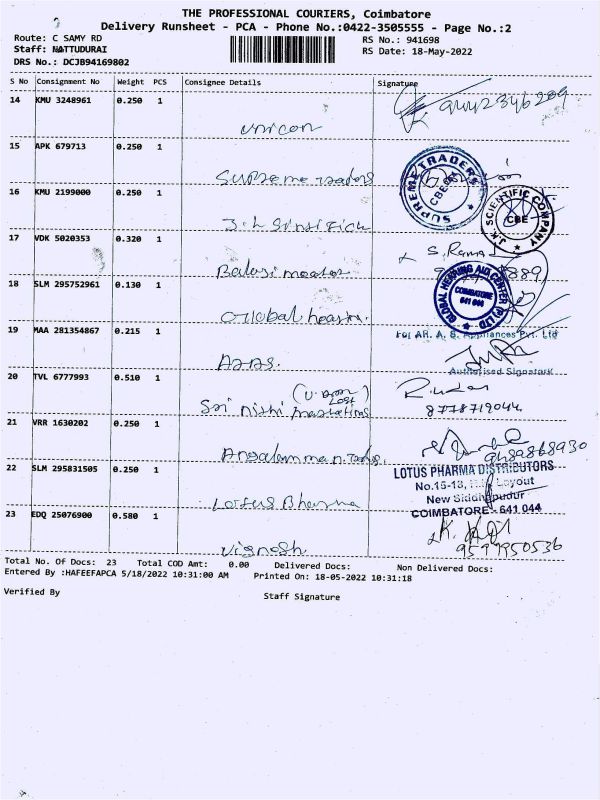 THE PROFESSIONAL COURIERS, Coimbatore
Delivery Runsheet - PCA - Phone No.:0422-3505555 - Page No.:2
Route: C SAMY RD
RS No.: 941698
Staff: NATTUDURAI
RS Date: 18-May-2022
DRS No.: DCJB94169802
S No Consignment No Weight PCS Consignee Details Signature
14 KMU 3248961 0.250 1
unicon
15 APK 679713 0.250 1
Supreme Traders
SUPREME TRADERS
CBE
16 KMU 2199000 0.250 1
J.K. SCIENTIFIC COMPANY
CBE
17 VDK 5020353 0.320 1
S. Rama
Balasi
18 SLM 295752961 0.130 1
GLOBAL HEARING AID CENTER (P) LTD
COIMBATORE
641 044
Global hearin.
19 MAA 281354867 0.215 1
For AR. A. S. Appliances Pvt. Ltd
Authorised Signatory
20 TVL 6777993 0.510 1
Sri Nidhi
8778719044
21 VRR 1630202 0.250 1
9489868930
Angalamman
22 SLM 295831505 0.250 1
LOTUS PHARMA DISTRIBUTORS
No.15-13, Layout
New Siddhapudur
COIMBATORE - 641 044
Lotus Pharma
23 EDQ 25076900 0.580 1
9597950536
Vignesh
Total No. Of Docs: 23 Total COD Amt: 0.00 Delivered Docs: Non Delivered Docs:
Entered By :HAFEEFAPCA 5/18/2022 10:31:00 AM Printed On: 18-05-2022 10:31:18
Verified By
Staff Signature